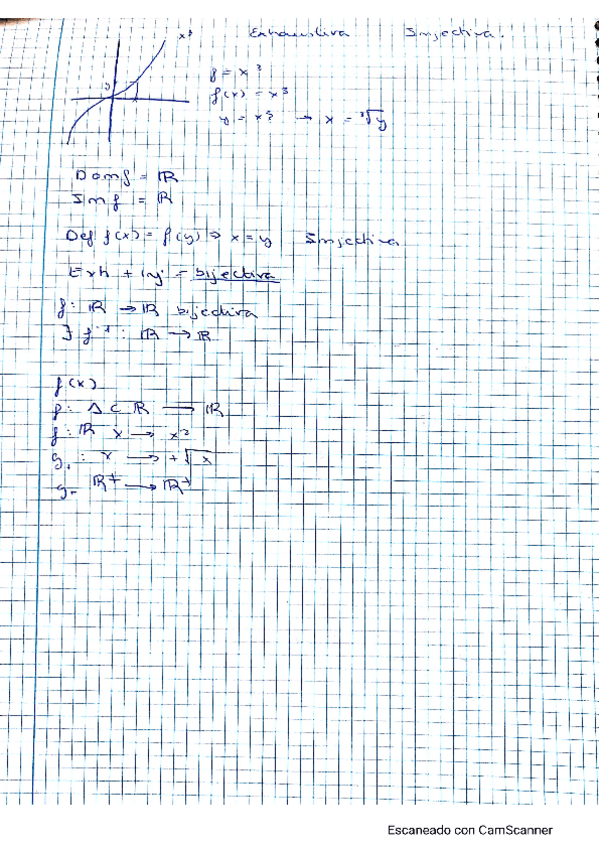 x³ Exhaustiva Injectiva.
f = x³
f(x) = x³
y = x³ → x = ³√y
Dom f = ℝ
Im f = ℝ
Def f(x) = f(y) ⇒ x = y Injectiva
Exh + iny = bijectiva
f: ℝ → ℝ bijectiva
∃ f⁻¹: ℝ → ℝ
f(x)
f: A ⊂ ℝ → ℝ
f: ℝ x → x²
g₁: x → +√x
g- ℝ⁺ → ℝ⁺
Escaneado con CamScanner